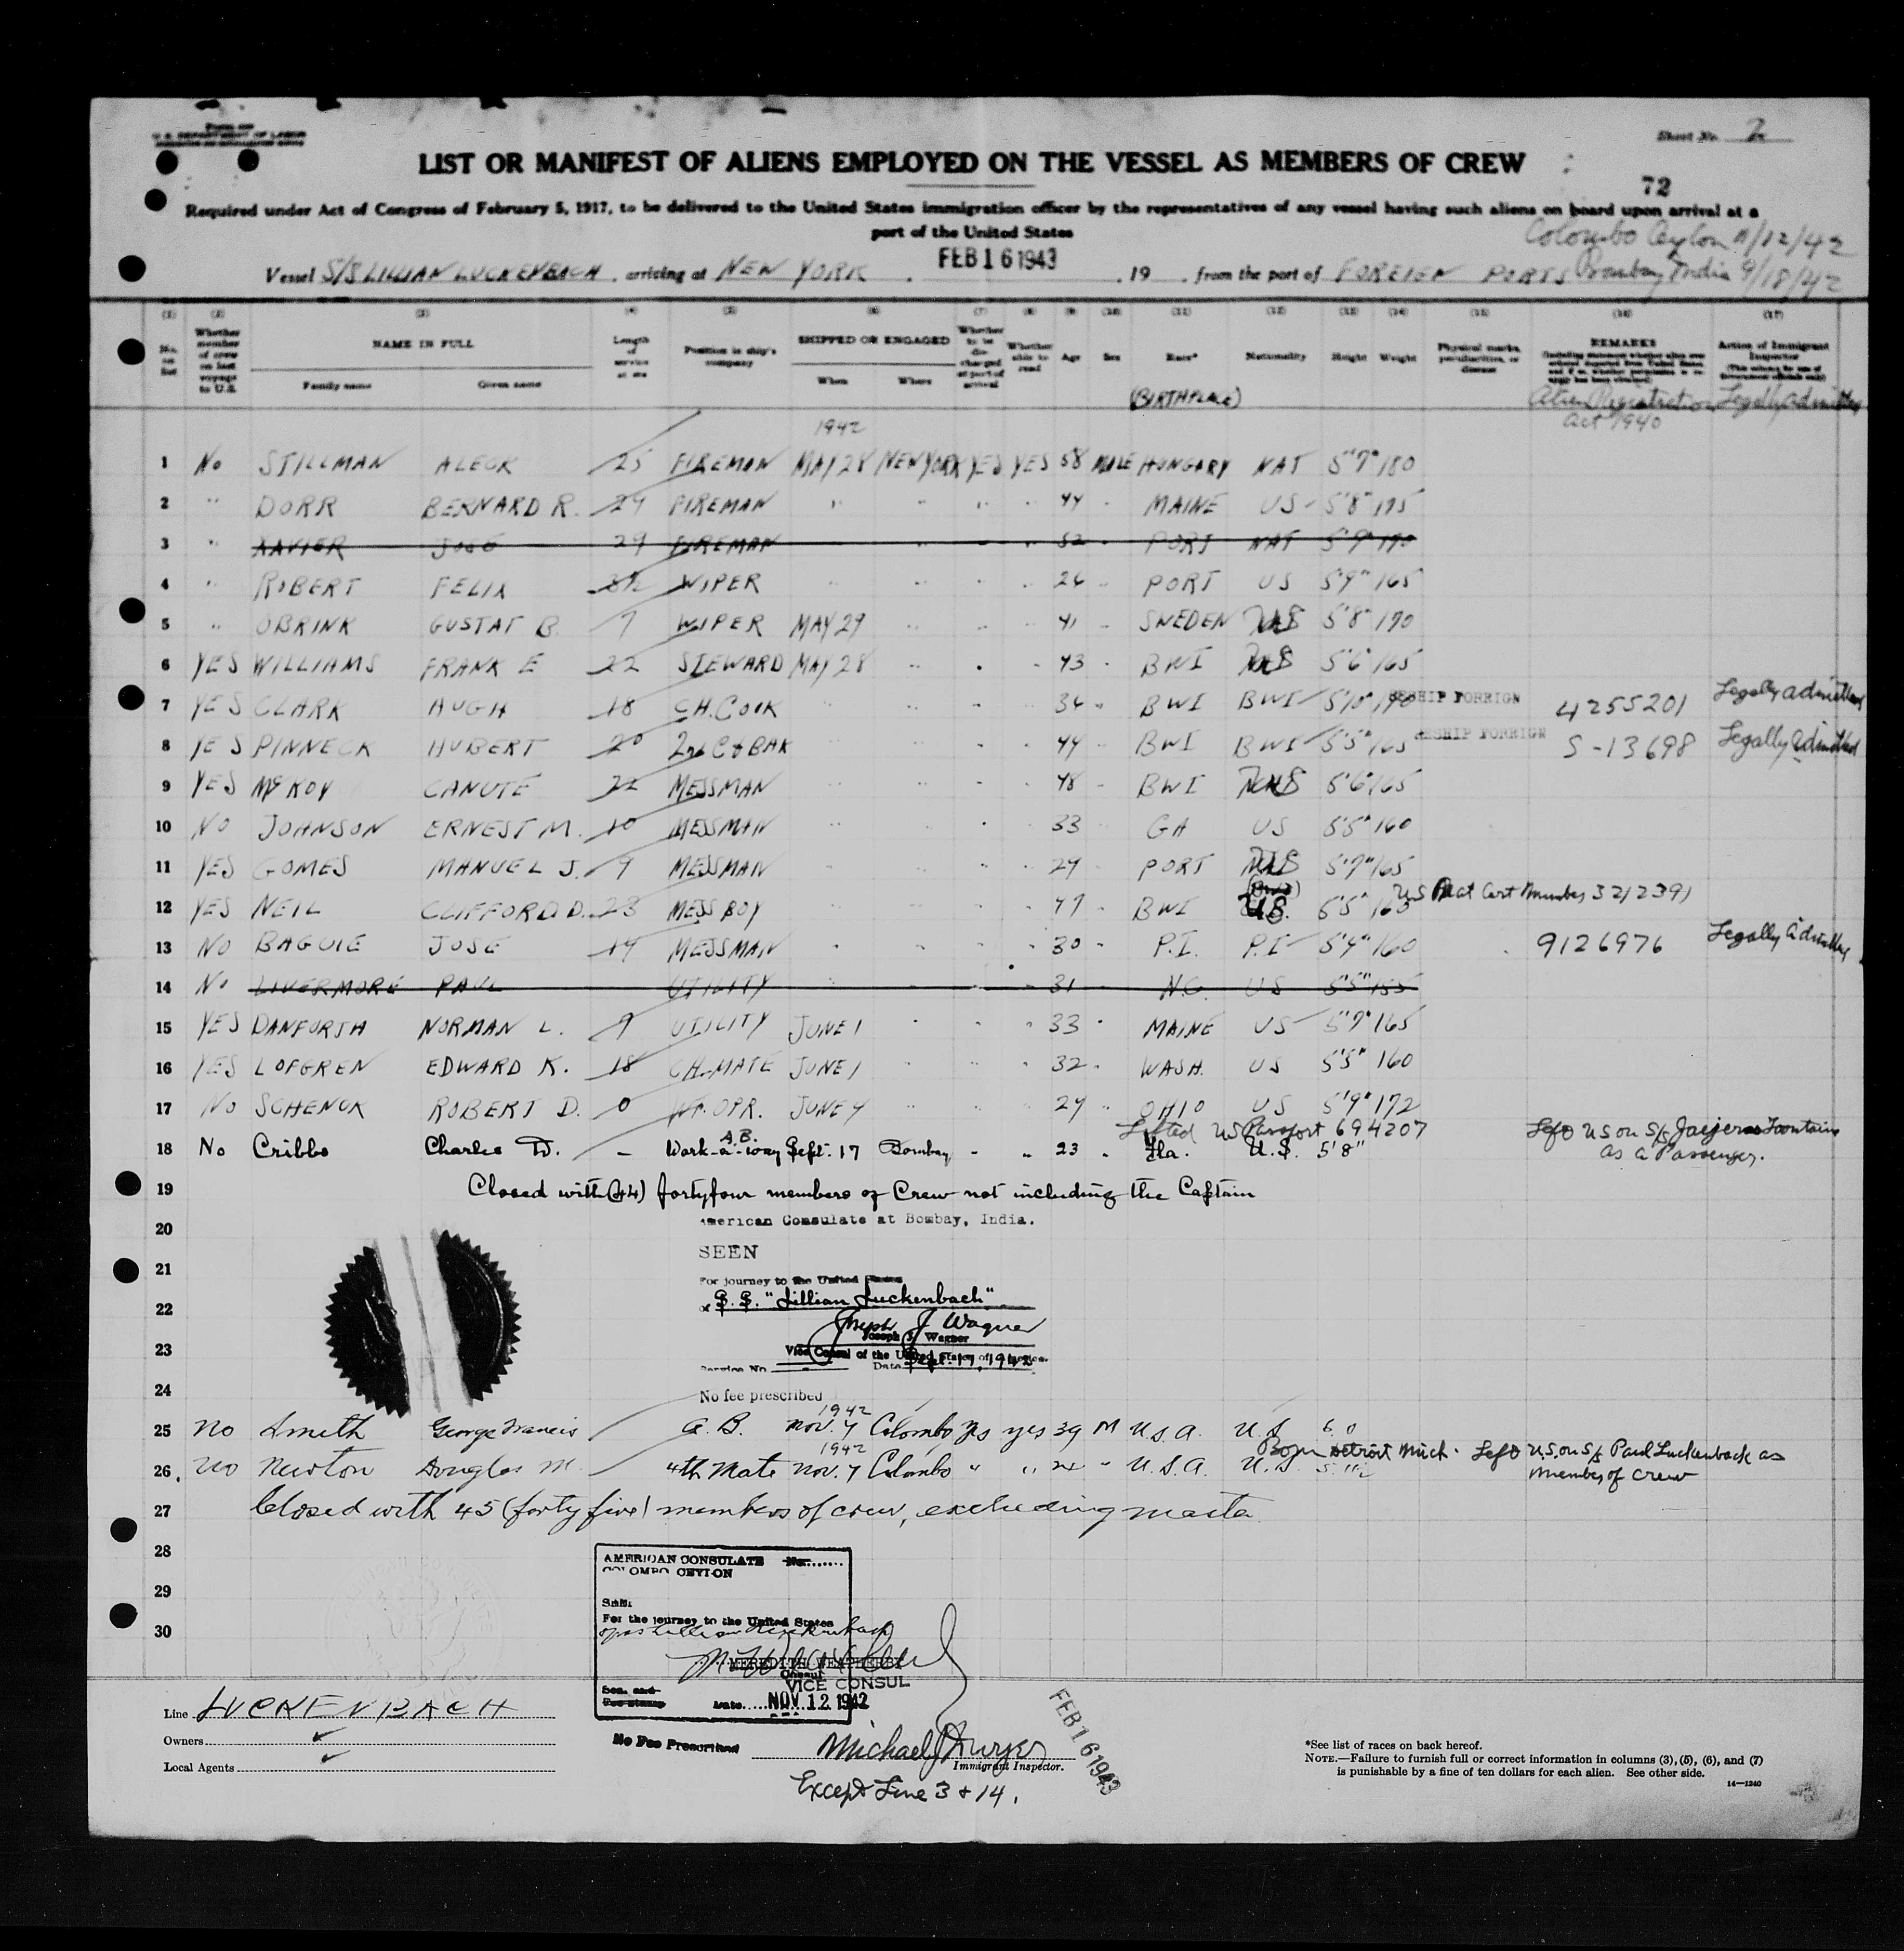 U. S. DEPARTMENT OF LABOR
Sheet No. 2
LIST OR MANIFEST OF ALIENS EMPLOYED ON THE VESSEL AS MEMBERS OF CREW
72
Required under Act of Congress of February 5, 1917, to be delivered to the United States immigration officer by the representatives of any vessel having such aliens on board upon arrival at a
port of the United States
Colombo Ceylon 11/12/42
Vessel S/S LILLIAN LUCKENBACH, arriving at NEW YORK, FEB 16 1943, 19 , from the port of FOREIGN PORTS Bombay India 9/18/42
(1) (2) (3) (4) (5) (6) (7) (8) (9) (10) (11) (12) (13) (14) (15) (16) (17)
No. on list
Whether member of crew on last voyage to U.S.
NAME IN FULL
Family name Given name
Length of service at sea
Position in ship's company
SHIPPED OR ENGAGED
When Where
Whether to be discharged at port of arrival
Whether able to read
Age Sex Race* Nationality Height Weight
Physical marks, peculiarities, or disease
REMARKS
Action of Immigrant Inspector
(BIRTHPLACE)
Alien Registration Act 1940
Legally admitted
1942
1 No STILLMAN ALECK 25 FIREMAN MAY 28 NEW YORK YES YES 58 MALE HUNGARY NAT 5'7" 180
2 " DORR BERNARD R. 29 FIREMAN " " " " 44 " MAINE US 5'8" 195
3 " XAVIER JOSE 29 FIREMAN " " " " 52 " PORT NAT 5'9" 190
4 " ROBERT FELIX WIPER " " " " 26 " PORT US 5'9" 165
5 " OBRINK GUSTAF B. 7 WIPER MAY 29 " " " 41 " SWEDEN US 5'8" 190
6 YES WILLIAMS FRANK E 22 STEWARD MAY 28 " " " 43 " BWI US 5'6" 165
7 YES CLARK HUGH 18 CH. COOK " " " " 36 " BWI BWI 5'10" 190 RESHIP FOREIGN 4255201 Legally admitted
8 YES PINNECK HUBERT 20 2nd C & BAK " " " " 44 " BWI BWI 5'5" 165 RESHIP FOREIGN S-13698 Legally admitted
9 YES McKOY CANUTE 22 MESSMAN " " " " 48 " BWI US 5'6" 165
10 NO JOHNSON ERNEST M. 10 MESSMAN " " " " 33 " GA US 5'5" 160
11 YES GOMES MANUEL J. 9 MESSMAN " " " " 29 " PORT US 5'7" 165
12 YES NEIL CLIFFORD D. 23 MESS BOY " " " " 47 " BWI U.S. 5'5" 160 US Nat Cert Number 3212391
13 NO BAGUIE JOSE 14 MESSMAN " " " " 30 " P.I. P.I 5'4" 160 9126976 Legally admitted
14 No LIVERMORE PAUL UTILITY " " " " 31 N.C. US 5'5" 155
15 YES DANFORTH NORMAN L. 9 UTILITY JUNE 1 " " " 33 " MAINE US 5'7" 165
16 YES LOFGREN EDWARD K. 18 CH. MATE JUNE 1 " " " 32 " WASH. US 5'5" 160
17 NO SCHENCK ROBERT D. 0 OPR. JUNE 4 " " " 24 " OHIO US 5'9" 172
Lifted US Passport 694207
18 No Cribbs Charlie D. – A.B. Work-a-way Sept. 17 Bombay " " 23 " Fla. U.S. 5'8" Left US on S/S as a Passenger.
19 Closed with (44) fortyfour members of Crew not including the Captain
20 American Consulate at Bombay, India.
SEEN
21
For journey to the United States
22 of S.S. "Lillian Luckenbach"
Joseph J Wagner
Joseph J. Wagner
23 Vice Consul of the United States of America.
Service No. – Date Sept. 17, 1942
24 No fee prescribed
1942
25 no Smith George Francis A. B. Nov. 7 Colombo yes yes 39 M U.S.A. U.S 6.0
1942
Born Detroit Mich. Left U.S. on S/S Paul Luckenback as member of crew
26. no Newton Douglas M. 4th Mate Nov. 7 Colombo " " " U.S.A. U.S.
27 Closed with 45 (forty five) members of crew, excluding master
28
AMERICAN CONSULATE No.......
COLOMBO CEYLON
29
SEEN
For the journey to the United States
30
MEREDITH WEATHERBY
Consul
VICE CONSUL
Date....NOV 12 1942
Line LUCKENBACH
Owners
Local Agents
No Fee Prescribed
Michael J Dwyer
Immigrant Inspector.
Except Line 3 & 14.
FEB 16 1943
*See list of races on back hereof.
NOTE.—Failure to furnish full or correct information in columns (3), (5), (6), and (7)
is punishable by a fine of ten dollars for each alien. See other side.
14—1240